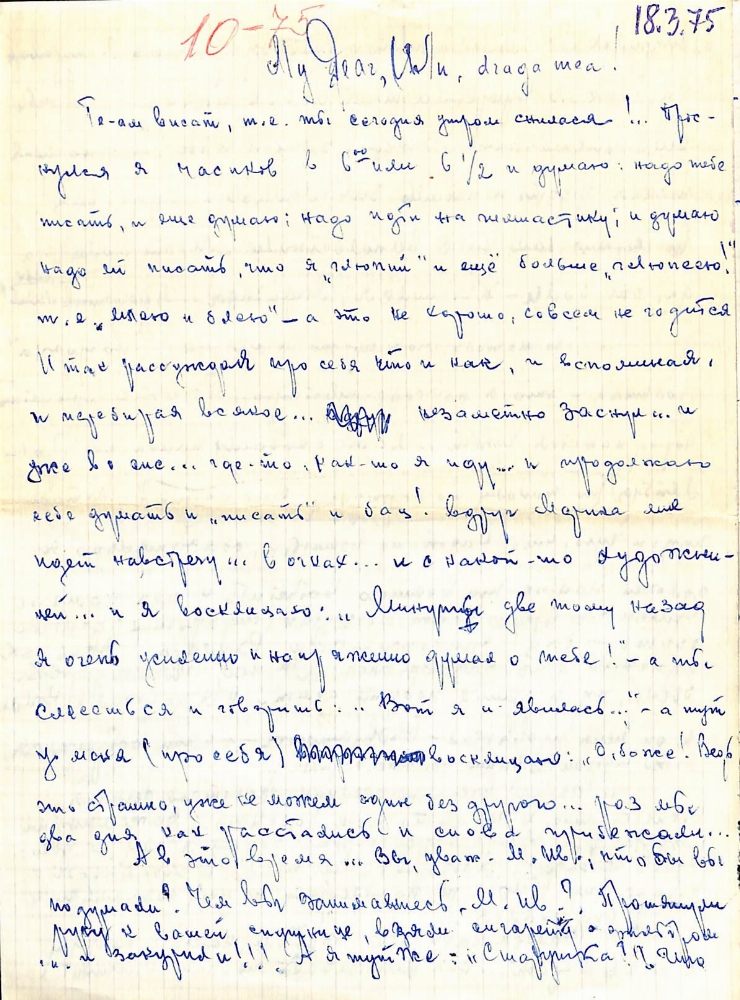 10-75
18.3.75
My Dear, draga mea!
Te-am visat, т.е. ты сегодня утром снилася!... Прос-
нулся я часиков в 6⁰⁰ или 6 1/2 и думаю: надо тебе
писать, и еще думаю: надо идти на гимнастику; и думаю
надо ей писать, что я „глюпий" и ещё больше „глюпею!"
т.е. „млею и блею" – а это не хорошо, совсем не годится
И так рассуждая про себя что и как, и вспоминая,
и перебирая всякое... незаметно заснул... и
уже во сне... где-то, как-то я иду... и продолжаю
себе думать и „писать" и бац! вдруг Марина мне
идет навстречу... в очках... и с какой-то художни-
цей... и я восклицаю: „Минуты две тому назад
я очень усиленно и напряженно думал о тебе!" – а ты
смеешься и говоришь: „Вот я и явилась..." – а тут
уж меня (про себя) восклицаю: „О, боже! Ведь
это страшно, уже не можем один без другого... раз мы
два дня как расстались и снова прибежали...
А в это время... Вы, уваж. М. Ив., что бы вы
подумали? Чем вы занимаетесь, М. Ив.? Протянули
руку к вашей спутнице, взяли сигарету с фильтром
... и закурили!!! А я тут же: „Старушка?!